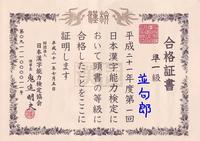 合格証書
準一級
並句郎
平成二十一年度第一回
日本漢字能力検定に
おいて頭書の等級に
合格したことをここに
証明します
財団法人
日本漢字能力検定協会
理事長 鬼追明夫